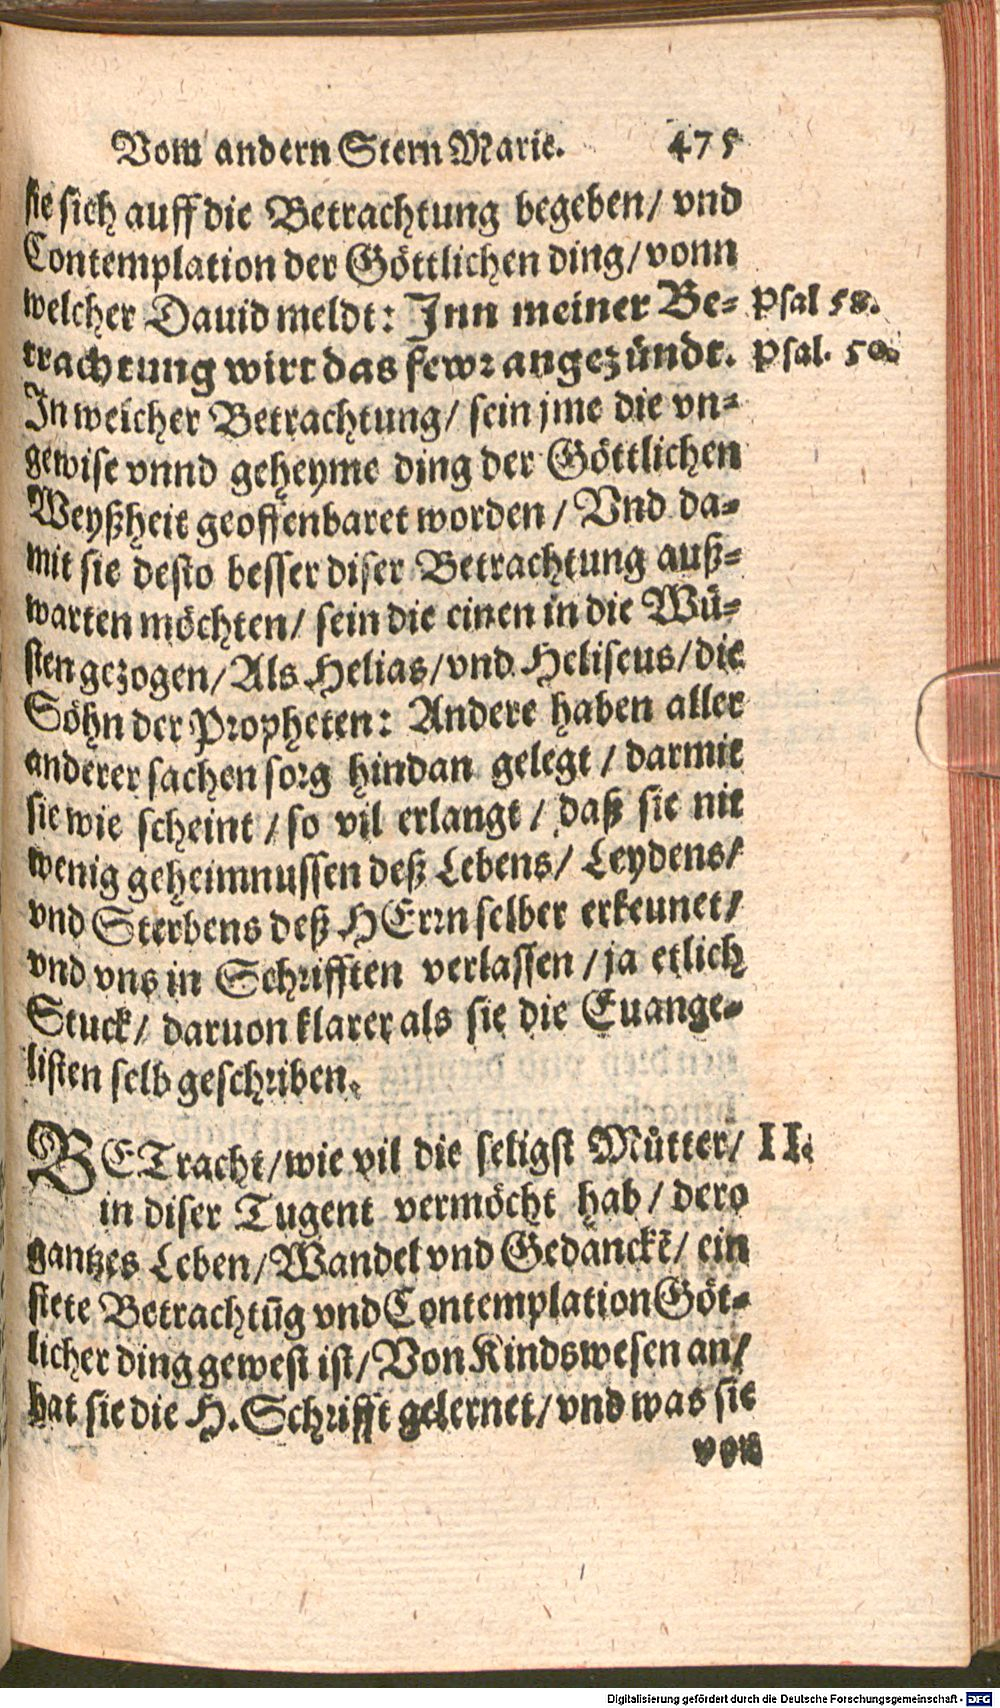 Vom andern Stern Marie. 475
sie sich auff die Betrachtung begeben/ vnd
Contemplation der Göttlichen ding/ vonn
welcher Dauid meldt: Inn meiner Be= Psal 58.
trachtung wirt das fewr angezündt. Psal. 50.
In welcher Betrachtung/ sein jme die vn=
gewise vnnd geheyme ding der Göttlichen
Weyßheit geoffenbaret worden/ Vnd da=
mit sie desto besser diser Betrachtung auß=
warten möchten/ sein die einen in die Wü=
sten gezogen/ Als Helias/ vnd Heliseus/ die
Söhn der Propheten: Andere haben aller
anderer sachen sorg hindan gelegt/ darmit
sie wie scheint/ so vil erlangt/ daß sie nit
wenig geheimnussen deß Lebens/ Leydens/
vnd Sterbens deß HErrn selber erkeunet/
vnd vns in Schrifften verlassen/ ja etlich
Stuck/ daruon klarer als sie die Euange=
listen selb geschriben.
BETracht/ wie vil die seligst Můtter/ II.
in diser Tugent vermöcht hab/ dero
gantzes Leben/ Wandel vnd Gedanckē/ ein
stete Betrachtūg vnd Contemplation Göt=
licher ding gewest ist/ Von Kindswesen an/
hat sie die H. Schrifft gelernet/ vnd was sie
von
Digitalisierung gefördert durch die Deutsche Forschungsgemeinschaft - DFG